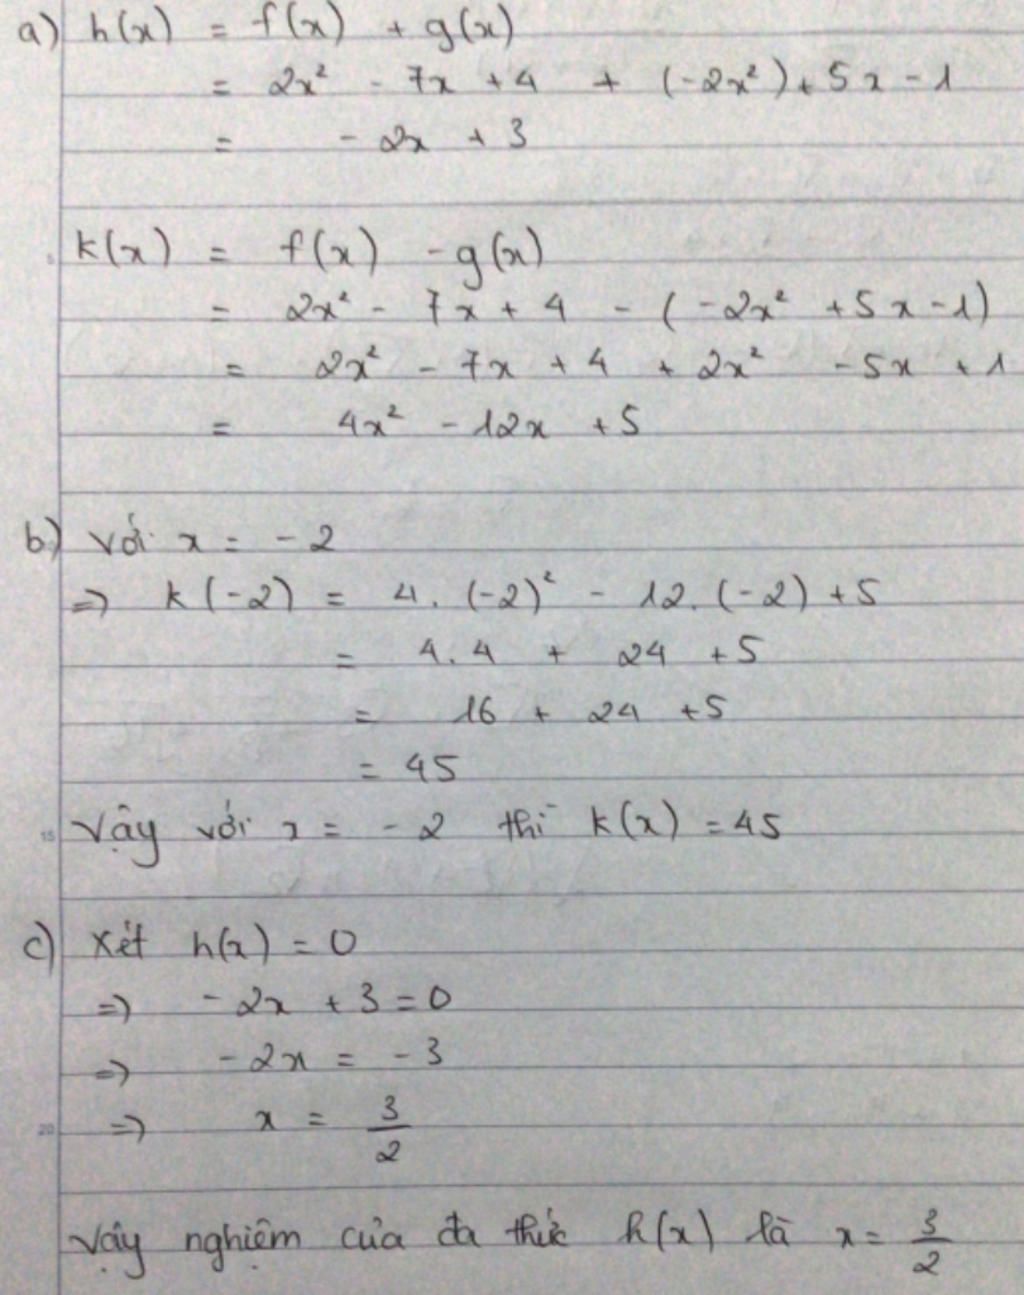 a) h(x) = f(x) + g(x)
= 2x² - 7x + 4 + (-2x²) + 5x - 1
= - 2x + 3
k(x) = f(x) - g(x)
= 2x² - 7x + 4 - (-2x² + 5x - 1)
= 2x² - 7x + 4 + 2x² - 5x + 1
= 4x² - 12x + 5
b) với x = - 2
=> k(-2) = 4. (-2)² - 12. (-2) + 5
= 4. 4 + 24 + 5
= 16 + 24 + 5
= 45
15
Vậy với x = - 2 thì k(x) = 45
c) Xét h(x) = 0
=> - 2x + 3 = 0
=> - 2x = - 3
20
=> x = 3/2
Vậy nghiệm của đa thức h(x) là x = 3/2